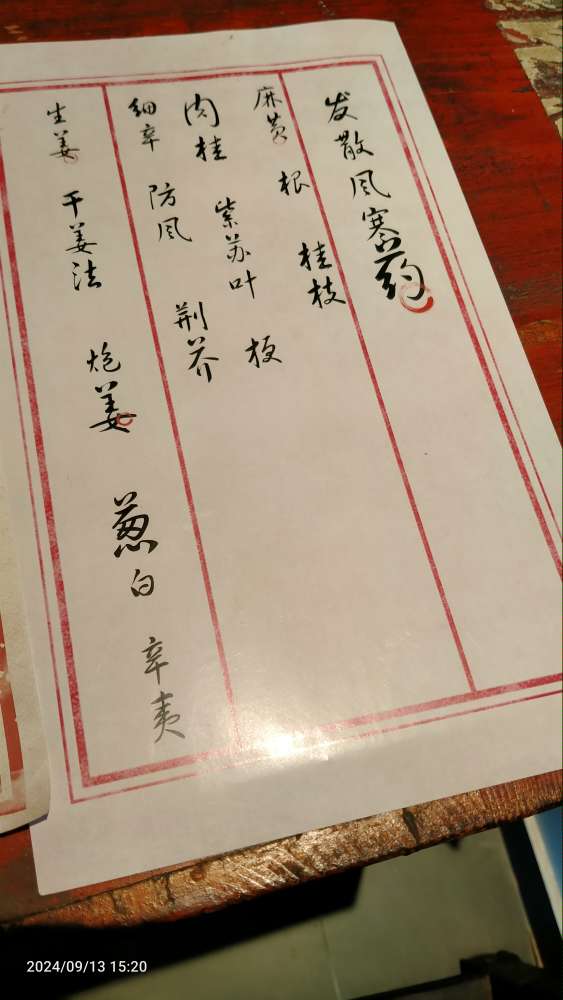 发散风寒药
麻黄 根 桂枝
肉桂 紫苏叶 梗
细辛 防风 荆芥
生姜 干姜 法 炮姜 葱白 辛夷
2024/09/13 15:20